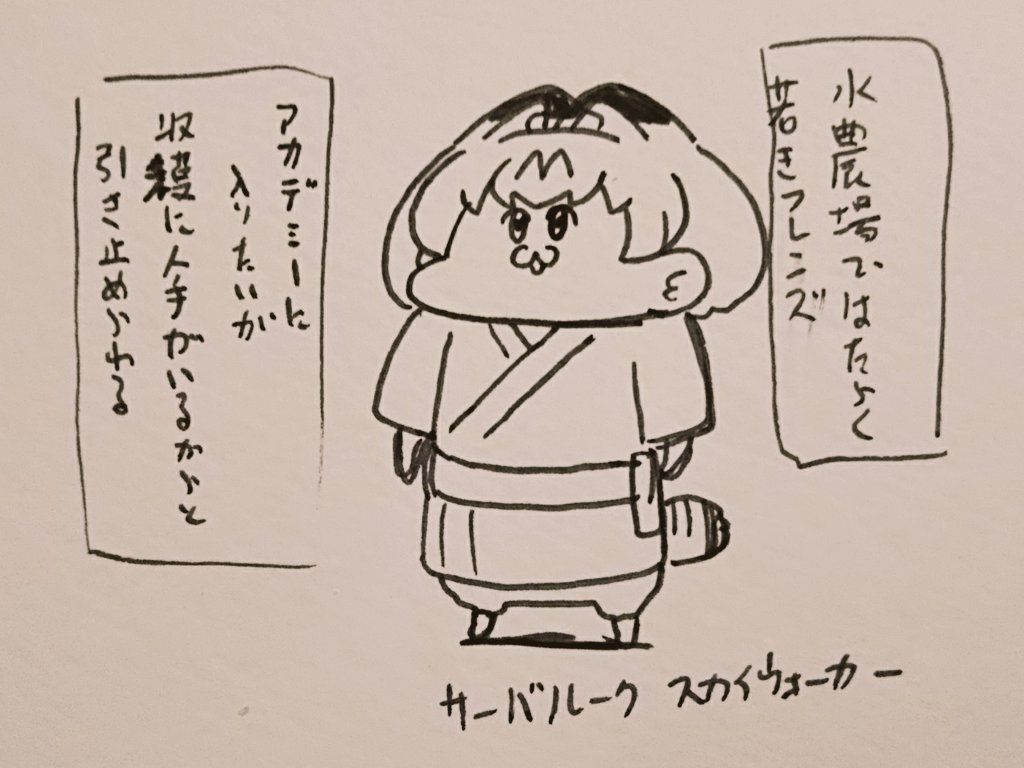 水農場ではたらく
若きフレンズ
アカデミーに
入りたいが
収穫に人手がいるからと
引き止められる
サーバルーク スカイウォーカー